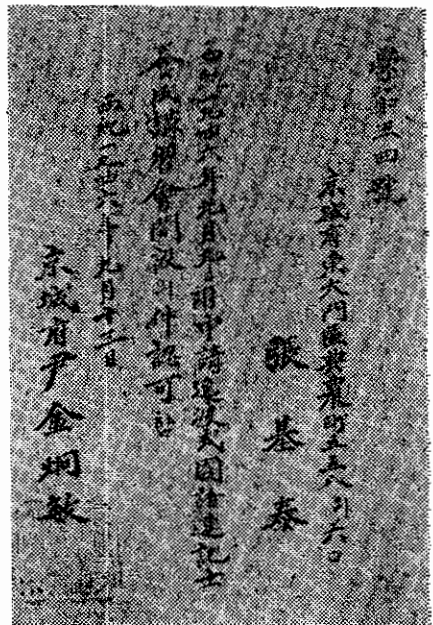 學 第五四號
京城府東大門區 町五五八의六
張基泰
西紀一九四六年九月 日附申請 式國語速記士
養成講習會開設의件認可함
西紀一九四六年九月十二日
京城府尹金炯敏